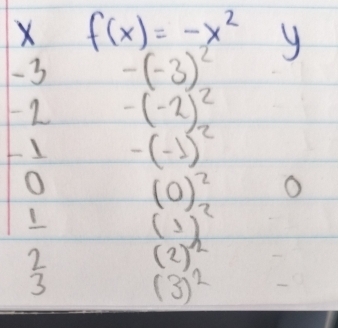 x f(x) = -x² y
-3 -(-3)²
-2 -(-2)²
-1 -(-1)²
0 (0)² 0
1 (1)²
2 (2)²
3 (3)²